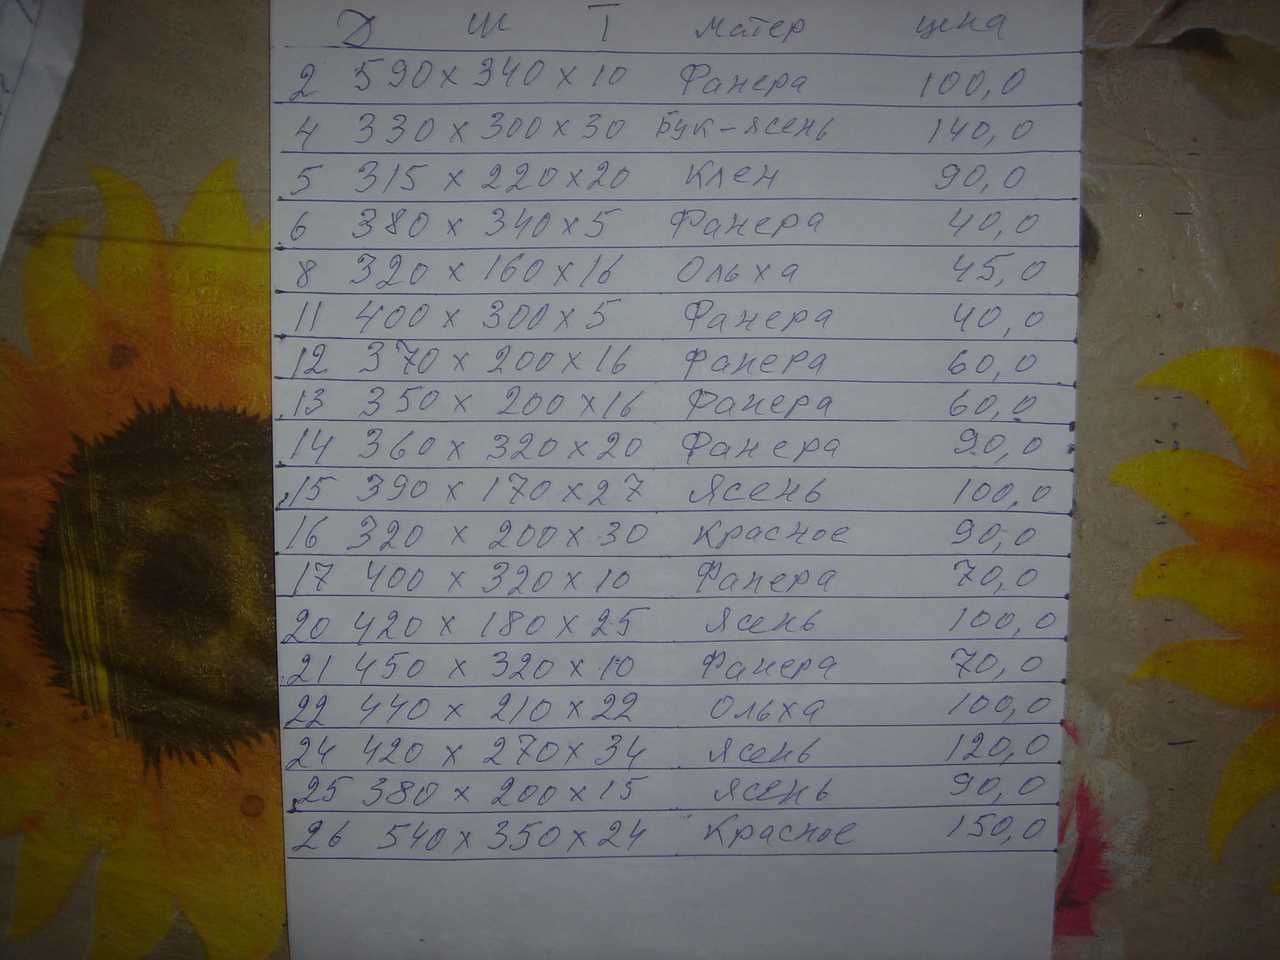 Д Ш Т матер цена
2 590 х 340 х 10 Фанера 100,0
4 330 х 300 х 30 Бук-ясень 140,0
5 315 х 220 х 20 Клен 90,0
6 380 х 340 х 5 Фанера 40,0
8 320 х 160 х 16 Ольха 45,0
11 400 х 300 х 5 Фанера 40,0
12 370 х 200 х 16 Фанера 60,0
13 350 х 200 х 16 Фанера 60,0
14 360 х 320 х 20 Фанера 90,0
15 390 х 170 х 27 Ясень 100,0
16 320 х 200 х 30 Красное 90,0
17 400 х 320 х 10 Фанера 70,0
20 420 х 180 х 25 Ясень 100,0
21 450 х 320 х 10 Фанера 70,0
22 440 х 210 х 22 Ольха 100,0
24 420 х 270 х 34 Ясень 120,0
25 380 х 200 х 15 Ясень 90,0
26 540 х 350 х 24 Красное 150,0